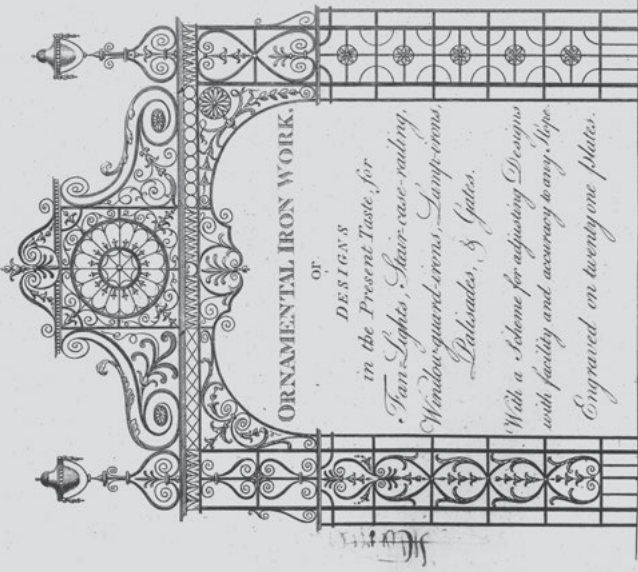 ORNAMENTAL IRON WORK.
OR
DESIGNS
in the Present Taste, for
Fan-Lights, Stair-case-railing,
Window-guard-irons, Lamp-irons,
Palisades, & Gates.
With a Scheme for adjusting Designs
with facility and accuracy to any Slope.
Engraved on twenty one plates.